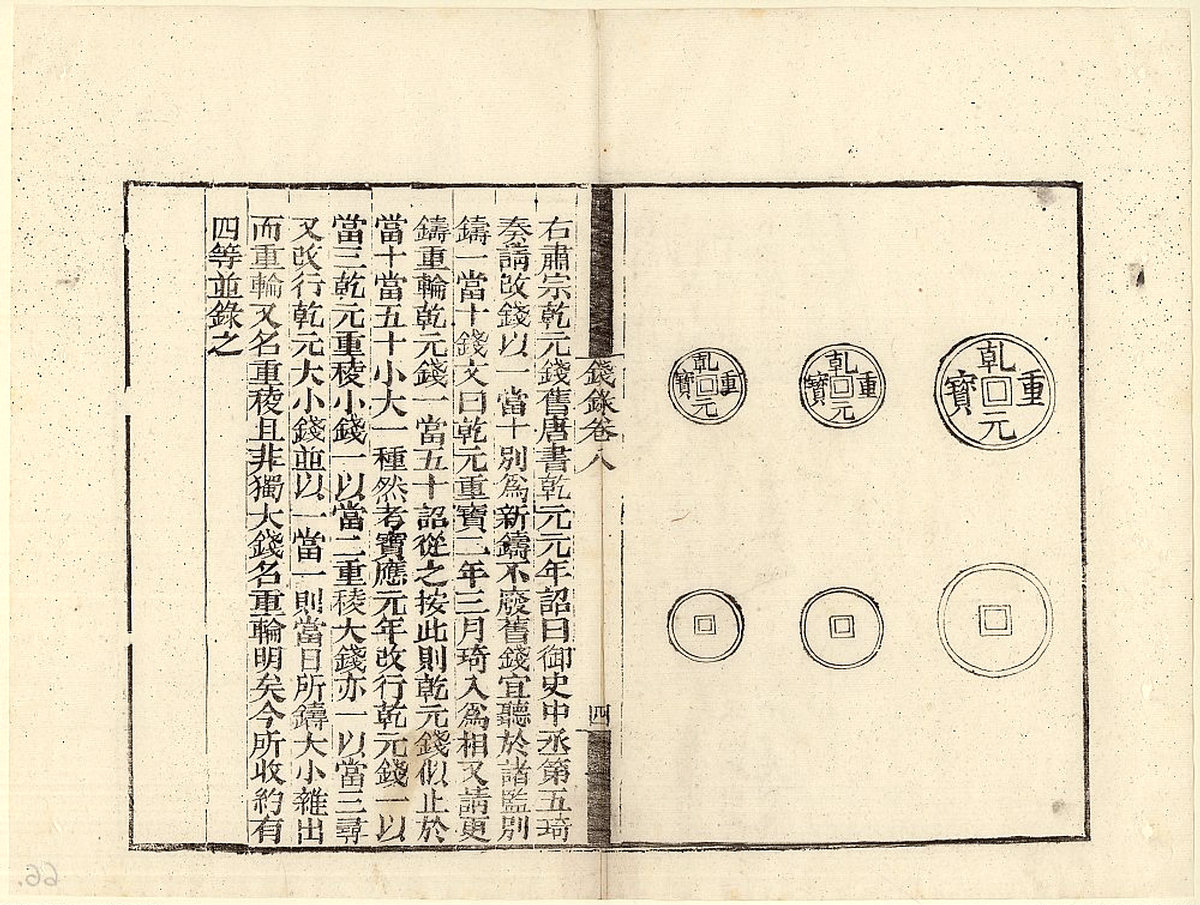 乾元重寶
乾元重寶
乾元重寶
錢錄卷八
四
右肅宗乾元錢舊唐書乾元元年詔曰御史中丞第五琦
奏請改錢以一當十別爲新鑄不廢舊錢宜聽於諸監別
鑄一當十錢文曰乾元重寶二年三月琦入爲相又請更
鑄重輪乾元錢一當五十詔從之按此則乾元錢似止於
當十當五十小大一種然考寶應元年改行乾元錢一以
當三乾元重稜小錢一以當二重稜大錢亦一以當三尋
又改行乾元大小錢並以一當一則當日所鑄大小雜出
而重輪又名重稜且非獨大錢名重輪明矣今所收約有
四等並錄之
66.